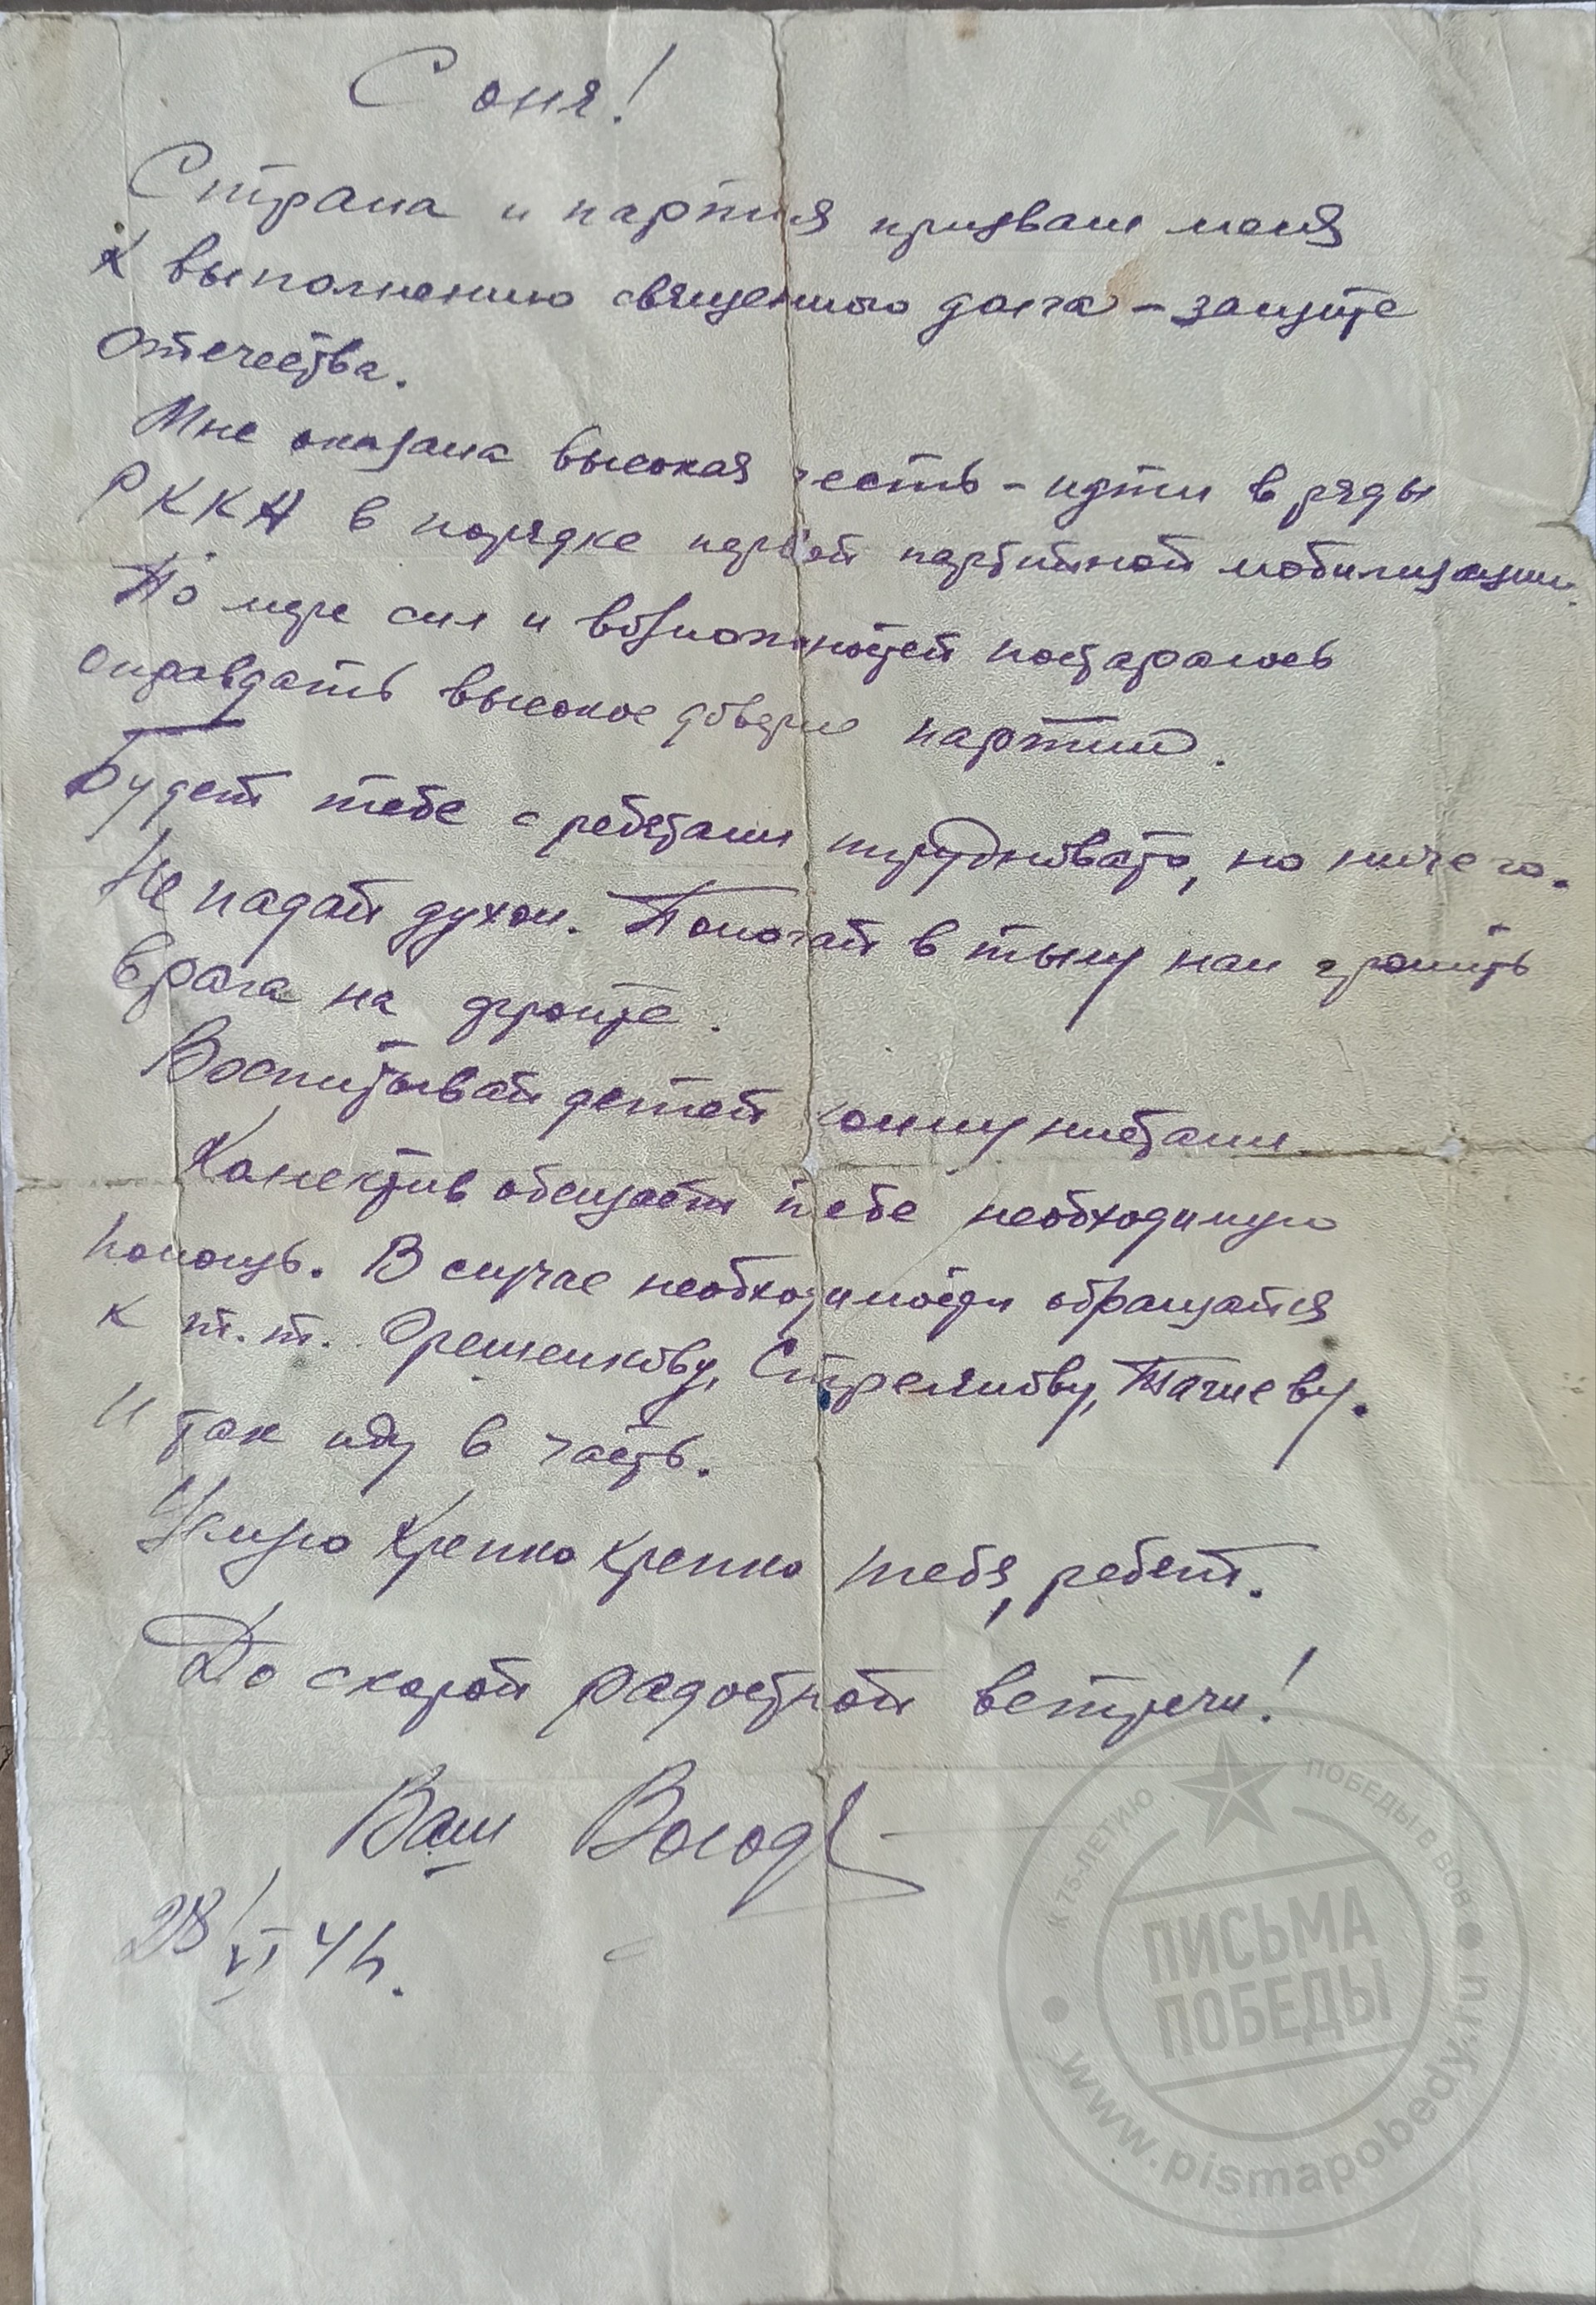 Соня!
Страна и партия призвали меня
к выполнению священного долга – защите
отечества.
Мне оказана высокая честь – идти в ряды
РККА в порядке первой партийной мобилизации.
По мере сил и возможностей постараюсь
оправдать высокое доверие партии.
Будет тебе с ребятами трудновато, но ничего.
Не падай духом. Помогай в тылу нам громить
врага на фронте.
Воспитывай детей коммунистами
Колектив обещает тебе необходимую
помощь. В случае необходимости обращайся
к т.т. Орешенкову, Стрелянову, Тагиеву.
И так иду в часть.
Целую крепко крепко тебя, ребят.
До скорой радостной встречи!
Ваш Володя
28/VI 41.
К 75-ЛЕТИЮ ПОБЕДЫ В ВОВ
ПИСЬМА
ПОБЕДЫ
www.pismapobedy.ru